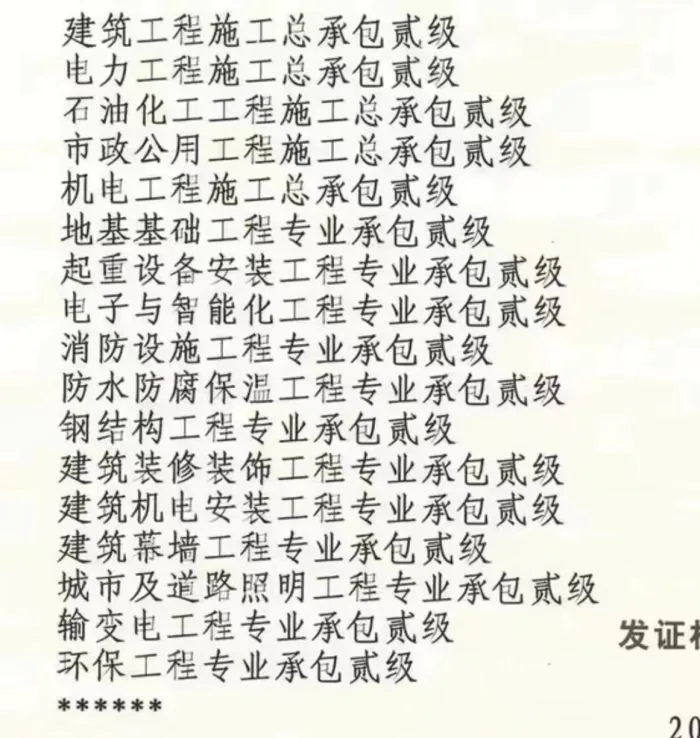 建筑工程施工总承包贰级
电力工程施工总承包贰级
石油化工工程施工总承包贰级
市政公用工程施工总承包贰级
机电工程施工总承包贰级
地基基础工程专业承包贰级
起重设备安装工程专业承包贰级
电子与智能化工程专业承包贰级
消防设施工程专业承包贰级
防水防腐保温工程专业承包贰级
钢结构工程专业承包贰级
建筑装修装饰工程专业承包贰级
建筑机电安装工程专业承包贰级
建筑幕墙工程专业承包贰级
城市及道路照明工程专业承包贰级
输变电工程专业承包贰级
环保工程专业承包贰级
******
发证
20